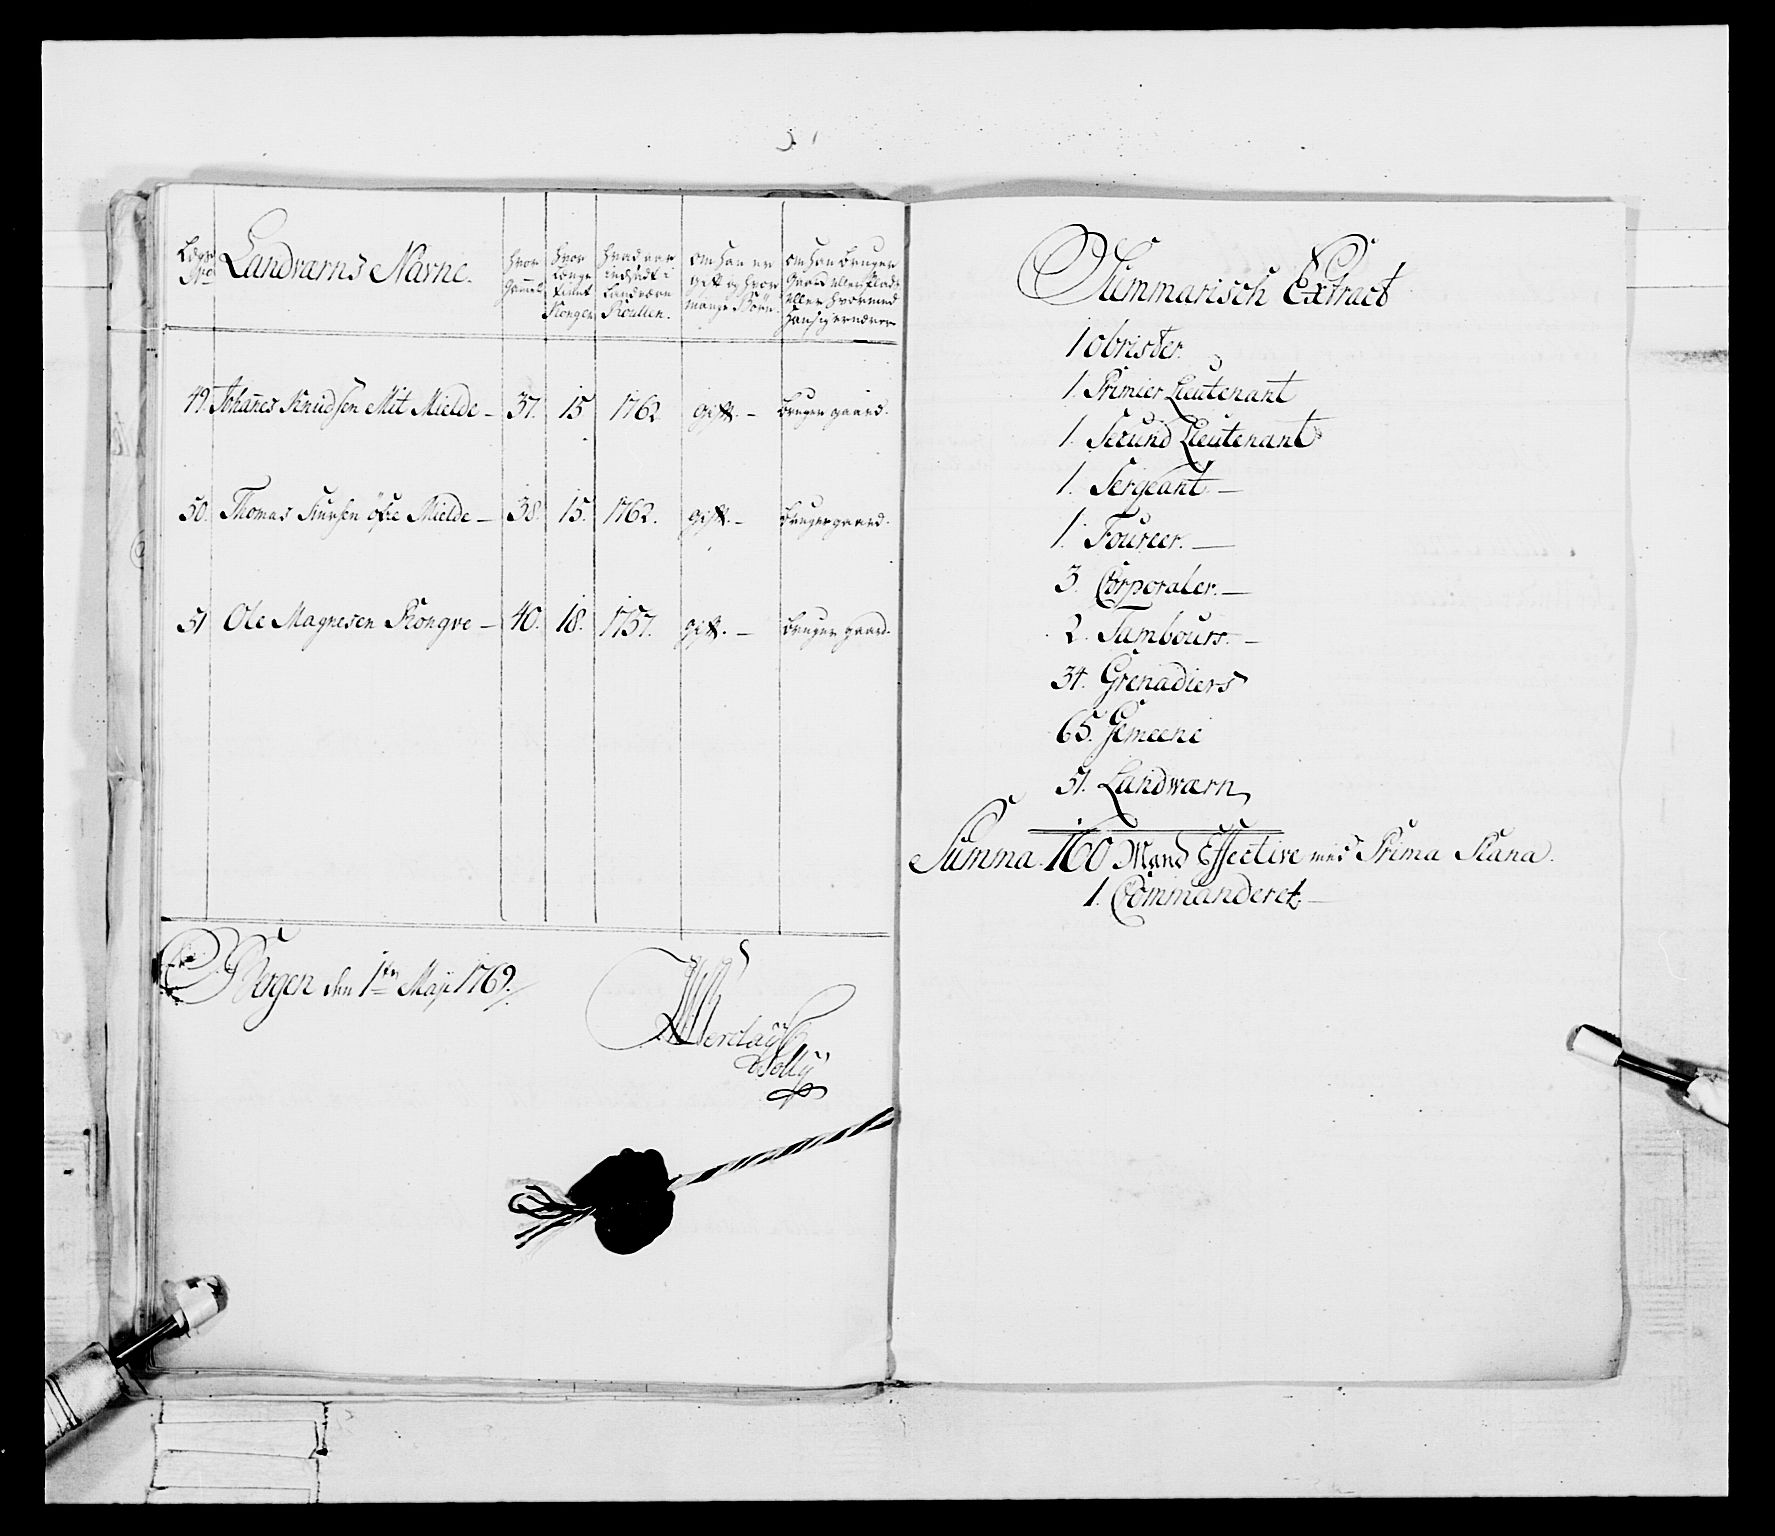 Lægs No Landværns Navne. hvor gammel hvor Længe tient Kongen hvad aar indsadt i Landværn Roullen. om han er gift og hvor mange Börn om han bruger gaard eller Plads eller hvormed han sig ernærer
49. Johanes Knudsen Mit Mielde – 37. 15 1762 gift. – bruger gaard.
50. Thomas öfre Mielde – 38. 15. 1762. gift. – bruger gaard.
51 Ole Magnesen – 40. 18. 1757. gift. – bruger gaard.
Bergen den 1ten Maji 1769.
Summarisch Extract
1 obrister.
1. Primier Lieutenant
1. Secund Lieutenant
1. Sergeant. —
1. Foureer. —
3. Corporaler. —
2. Tambours. —
34. Grenadiers
65. Gemeene
51. Landwærn
Summa. 160 Mand Effective med Prima Plana.
1. Commanderet. —